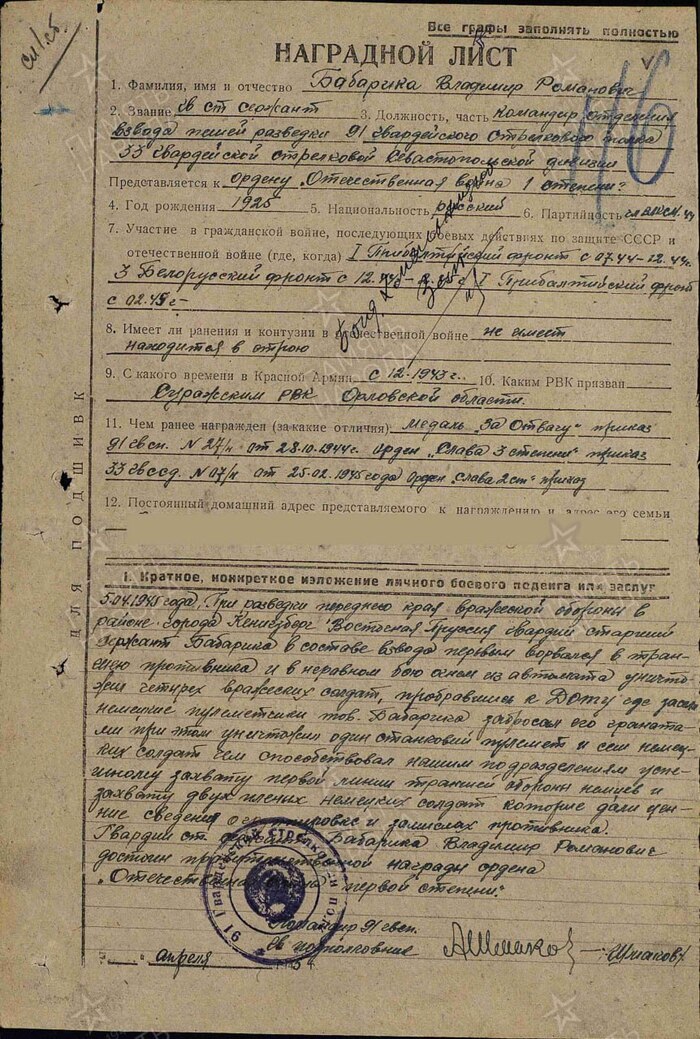 Все графы заполнять полностью
НАГРАДНОЙ ЛИСТ
1. Фамилия, имя и отчество Бабарика Владимир Романович
2. Звание гв ст сержант 3. Должность, часть командир отделения
взвода пешей разведки 91 гвардейского стрелкового полка
33 гвардейской стрелковой Севастопольской дивизии
Представляется к ордену "Отечественная война 1 степени"
4. Год рождения 1925 5. Национальность русский 6. Партийность чл ВЛКСМ
7. Участие в гражданской войне, последующих боевых действиях по защите СССР и
отечественной войне (где, когда) I Прибалтийский фронт с 07.44-12.44г.
3 Белорусский фронт с 12. I Прибалтийский фронт
с 02.45г-
8. Имеет ли ранения и контузии в отечественной войне не имеет
находится в строю
9. С какого времени в Красной Армии с 12-1943г. 10. Каким РВК призван
Суражским РВК Орловской области.
11. Чем ранее награжден (за какие отличия) медаль "За Отвагу" приказ
91 гвсп. N 27/н от 28.10.1944г. орден "Слава 3 степени" приказ
33 гвсд. N 07/н от 25.02.1945 года Орден "Слава 2 ст" приказ
12. Постоянный домашний адрес представляемого к награждению и адрес его семьи
ДЛЯ ПОДШИВКИ
I. Краткое, конкретное изложение личного боевого подвига или заслуг
5.04.1945 года, При разведки переднего края вражеской обороны в
районе города Кенигзберг Восточная Пруссия гвардий старший
сержант Бабарика в составе взвода первым ворвался в тран-
шею противника и в неравном бою огнем из автомата уничто-
жил четырех вражеских солдат, пробравшись к Дому где засели
немецкие пулеметчики тов. Бабарика забросал его граната-
ми при этом уничтожил один станковый пулемет и сем немец-
ких солдат чем способствовал нашим подразделениям успе-
шному захвату первой линии траншей обороны немцев и
захвату двух пленых немецких солдат которые дали цен-
ные сведения о группировке и замыслах противника.
Гвардии ст. Бабарика Владимир Романович
достоин правительственной награды ордена
"Отечественная война первой степени".
91 Гвардейский стрелковый полк
Командир 91 гвсп.
гв подполковник Шмаков
апреля